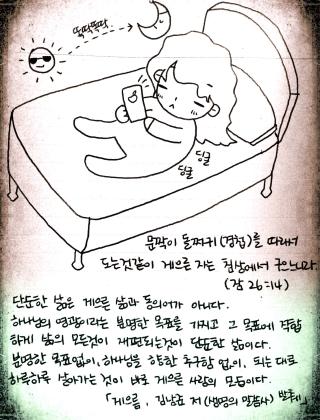 뚝딱뚝딱
딩굴
딩굴
문짝이 돌쩌귀(경첩)를 따라서
도는것같이 게으른 자는 침상에서 구으느니라.
(잠 26:14)
단순한 삶은 게으른 삶과 동의어가 아니다.
하나님의 영광이라는 분명한 목표를 가지고 그 목표에 적합
하게 삶의 모든것이 재편되는것이 단순한 삶이다.
분명한 목표없이, 하나님을 향한 추구함 없이, 되는 대로
하루하루 살아가는 것이 바로 게으른 사람의 모습이다.
「게으름, 김남준 저 (생명의 말씀사) 발췌」